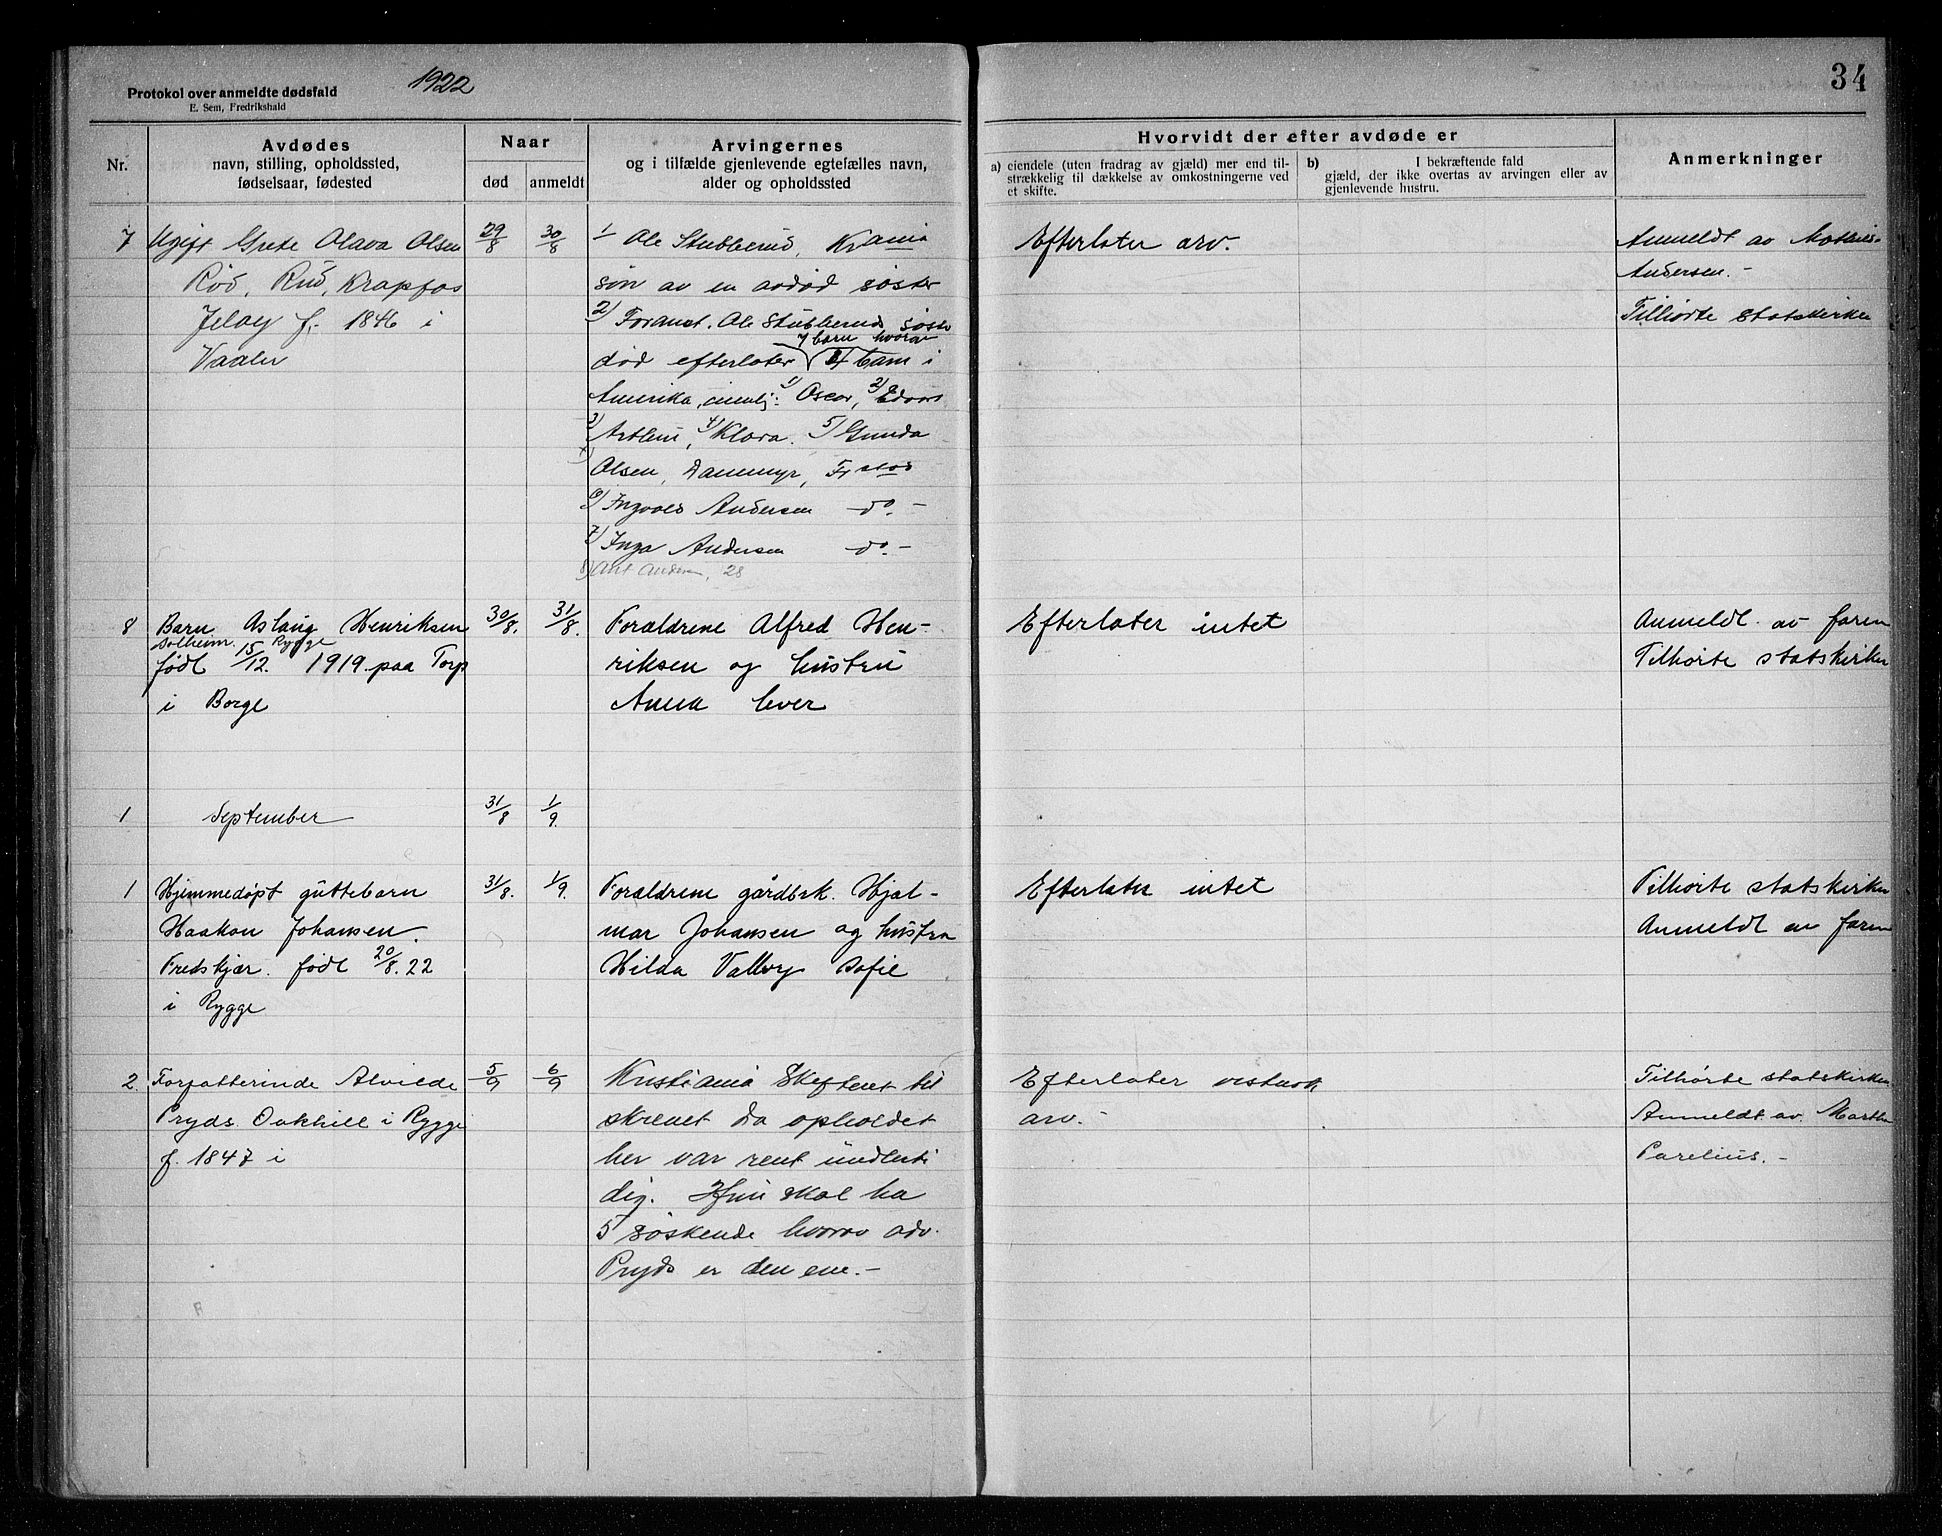 1922
34
Protokol over anmeldte dødsfald
E. Sem, Fredrikshald
Nr.
Avdødes
navn, stilling, opholdssted,
fødselsaar, fødested
Naar
død
anmeldt
Arvingernes
og i tilfælde gjenlevende egtefælles navn,
alder og opholdssted
Hvorvidt der efter avdøde er
a) eiendele (uten fradrag av gjæld) mer end til-
strækkelig til dækkelse av omkostningerne ved
et skifte.
b) I bekræftende fald
gjæld, der ikke overtas av arvingen eller av
gjenlevende hustru.
Anmerkninger
7
Ugift Grete Olava Olsen
Rød, Rud, Krapfos
Jeløy f. 1846 i
Vaaler
29/8
30/8
1 Ole Stubberud, Krania
søn av en avdød søster
2) Foranst. Ole Stubberuds søster
7 barn hvorav
død efterlater 4 barn i
Amerika, nemlig: 1) Oscar, 2) Edvard
3) Arthur, 4) Klara. 5) Gunda
Olsen, Dammyr, Frstad
6) Ingvald Andersen do. -
7) Inga Andersen do. -
8) Andersen, 28
Efterlater arv.
Anmeldt av Mathias
Andersen. -
Tilhørte statskirken
8
Barn Aslaug Henriksen
Solheim. Rygge
født 15/12. 1919. paa Torp
i Borge
30/8.
31/8.
Forældrene Alfred Hen-
riksen og hustru
Anna lever
Efterlater intet
Anmeldt av faren
Tilhørte statskirken
1
September
31/8
1/9.
1
Hjemmedøpt guttebarn
Haakon Johansen.
Fredskjær. født 20/8. 22
i Rygge
31/8.
1/9.
Forældrene gårdbrk. Hjal-
mar Johansen og hustru
Hilda Valborg Sofie
Efterlater intet
Tilhørte statskirken
Anmeldt av faren
2
Forfatterinde Alvilde
Pryds. Oakhill i Rygge
f. 1847 i
5/9
6/9
Kristiania Skifteret til
skrevet da opholdet
her var rent underti
dig. Hun skal ha
5 søskende hvorav adv.
Pryds er den ene. -
Efterlater vistnok
arv. -
Tilhørte statskirken
Anmeldt av. Martha
Parelius. -